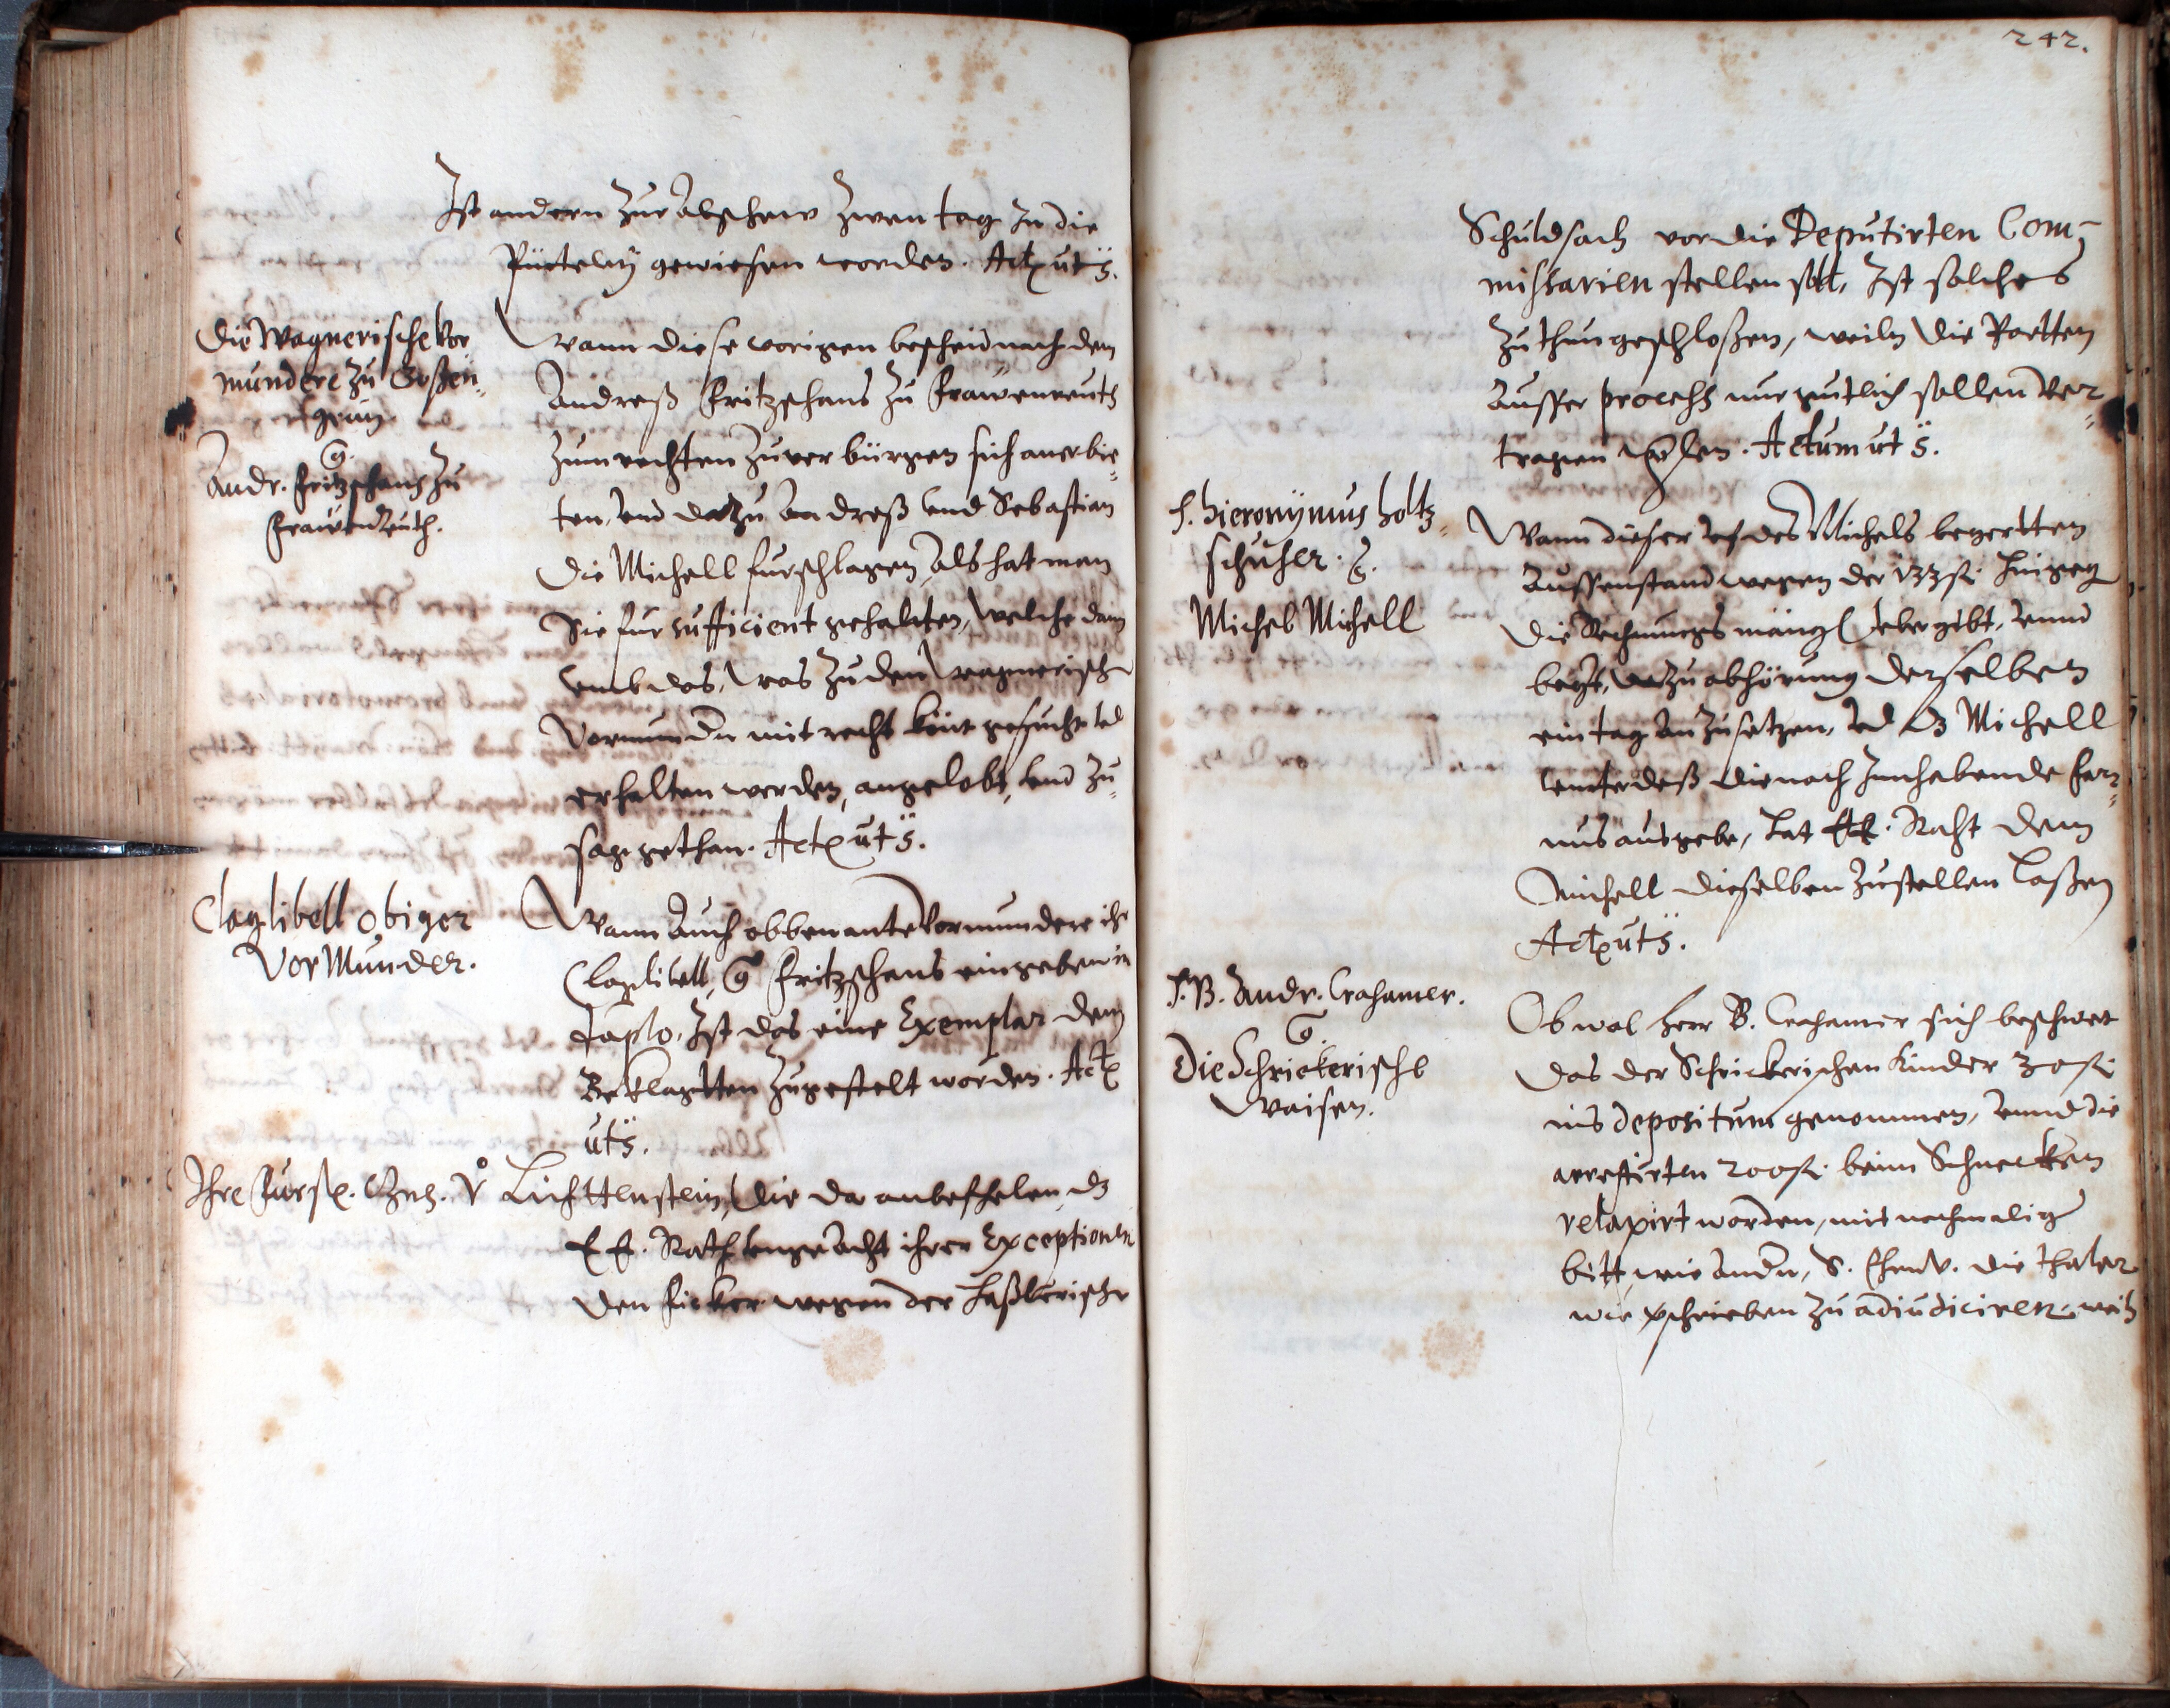 Ist andern zur abschew zwen tag in die
Pütteley gewiesen worden. Act. ut s.
Die Wagnerische Vor
mündere zu Goßen-
grün
Andr. Fritzschans zu
Frawenreuth.
Wann diese vorigen bescheid nach dem
Andreß Fritzschans zu Frawenreuth
zum rechten zuverbürgen sich anerbie-
ten, und dazu Andreß und Sebastian
die Michell furschlagen, als hat man
Sie fur sufficient gehalten, welche dann
umb das, was zu den Wagnerische
Vormundn mit recht könt gesucht und
erhalten werden, angelobt, und zu-
sag gethan. Act. ut s.
Claglibell obiger
Vormünder.
Wann auch obbenante Vormundere ihr
Claglibell, Fritzschans eingeben in
duplo, Ist das eine Exemplar dem
Beklagtten zugestelt worden. Act.
ut s.
Ihre Fürstl. Gn. v. Lichttenstein, die da anbefhelen, dz
E E. Rath ungeacht ihrer Exceptionen
den Fücker wegen der
242.
Schuldsach vor die Deputirten Com-
missarien stellen soll, Ist solches
zu thun geschloßen, weiln die Partten
ausser process nur gutlich sollen ver-
tragen werden. Actum ut s.
H. Hieronymus Holtz-
schuher.
Michel Michell
Wann dieser uf des Michels begertten
aussenstand wegen der 133 fl. hingeg
die Rechnungs mängl ubergibt, unnd
begt, zu abhörung derselben
ein tag anzusetzen, und dz Michell
unterdeß die noch innhabende Far-
nus ausgebe, hat EE. Raht dem
Michell dieselben zustellen laßen
Act. ut s.
H. B. Andr. Crahamer.
Die Schrickerische
Waisen.
Ob wol herr B. Crahamer sich beschwert
das der Schrickerischen Kinder 30 fl.
ins depositum genommen, unnd die
arrestirten 200 fl. beim Schnecken
relaxirt worden, mit nochmalig
bitt, wie andn, die thaler
wie zu adiudiciren, weil